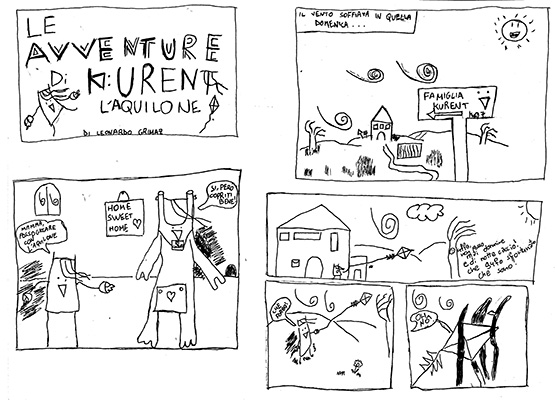 LE
AVVENTURE
DI KURENT
L'AQUILONE
DI LEONARDO
IL VENTO SOFFIAVA IN QUELLA
DOMENICA...
FAMIGLIA
KURENT
MAMMA,
POSSO
CON
L'AQUILONE
HOME
SWEET
HOME
SI, PERÒ
COPRITI
BENE!
che gufo
che sono!
OH
NO!